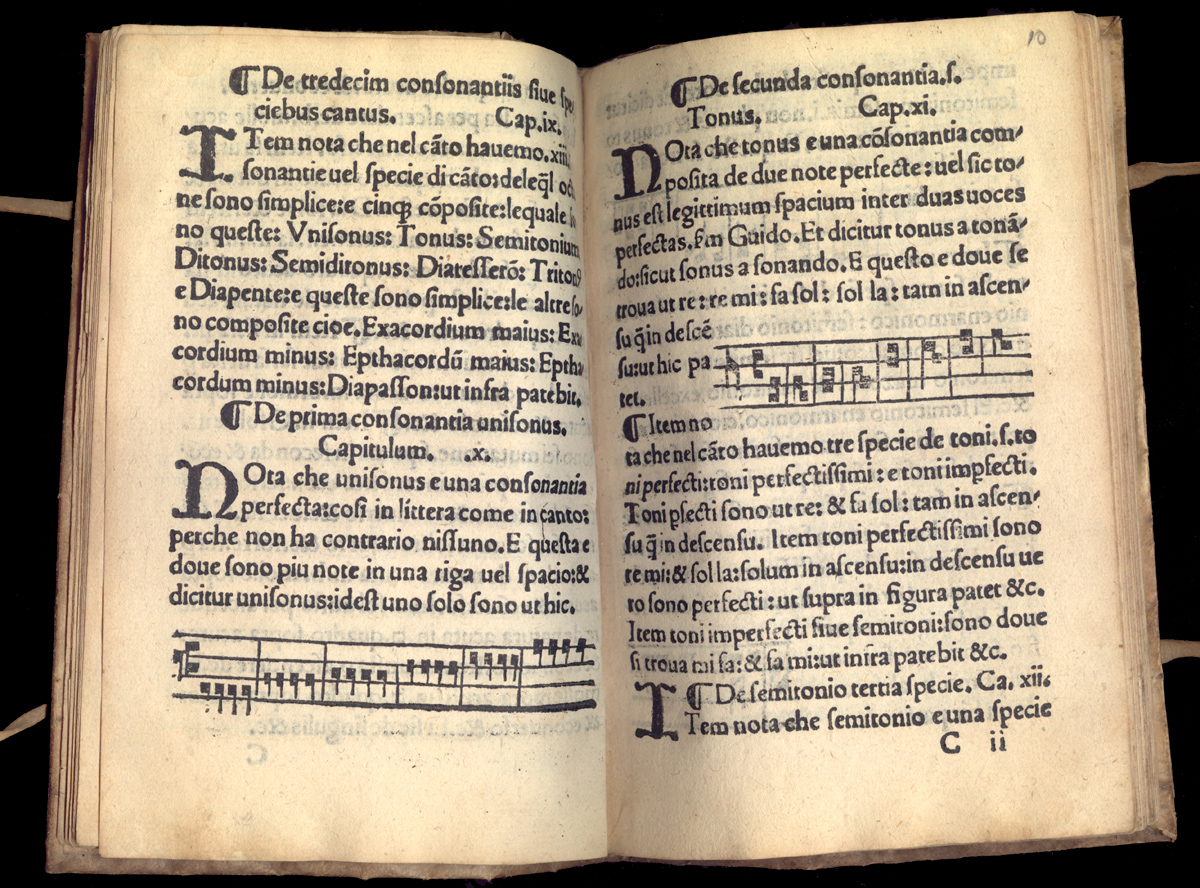 ¶ De tredecim consonantiis siue spe
ciebus cantus. Cap.ix.
ITem nota che nel cãto hauemo.xiii.
sonantie uel specie di cãto:dele q̃l octo
ne sono simplice:e cinq̃ cõposite:lequale so
no queste: Vnisonus: Tonus: Semitonium
Ditonus: Semiditonus: Diatesserõ: Tritonꝰ
e Diapente:e queste sono simplice:le altre so
no composite cioe. Exacordium maius: Exa
cordium minus: Epthacordũ maius: Eptha
cordum minus: Diapasson:ut infra patebit.
¶ De prima consonantia unisonus.
Capitulum. .x.
NOta che unisonus e una consonantia
perfecta:cosi in littera come in canto:
perche non ha contrario nissuno. E questa e
doue sono piu note in una riga uel spacio:&
dicitur unisonus:idest uno solo sono ut hic.
10
¶ De secunda consonantia.s.
Tonus. Cap.xi.
NOta che tonus e una cõsonantia com-
posita de due note perfecte: uel sic to-
nus est legittimum spacium inter duas uoces
perfectas. Guido. Et dicitur tonus a tonã-
do:sicut sonus a sonando. E questo e doue se
troua ut re: re mi: fa sol: sol la: tam in ascen-
su q̃ in descẽ
su:ut hic pa
tet.
¶ Item no
ta che nel cãto hauemo tre specie de toni.s.to
ni perfecti:toni perfectissimi: e toni imperfecti.
Toni perfecti sono ut re: & fa sol: tam in ascen-
su q̃ in descensu. Item toni perfectissimi sono
re mi:& sol la:solum in ascensu:in descensu ue
ro sono perfecti: ut supra in figura patet &c.
Item toni imperfecti siue semitoni:sono doue
si troua mi fa: & fa mi:ut infra patebit &c.
¶ De semitonio tertia specie. Ca. xii.
ITem nota che semitonio e una specie
C ii